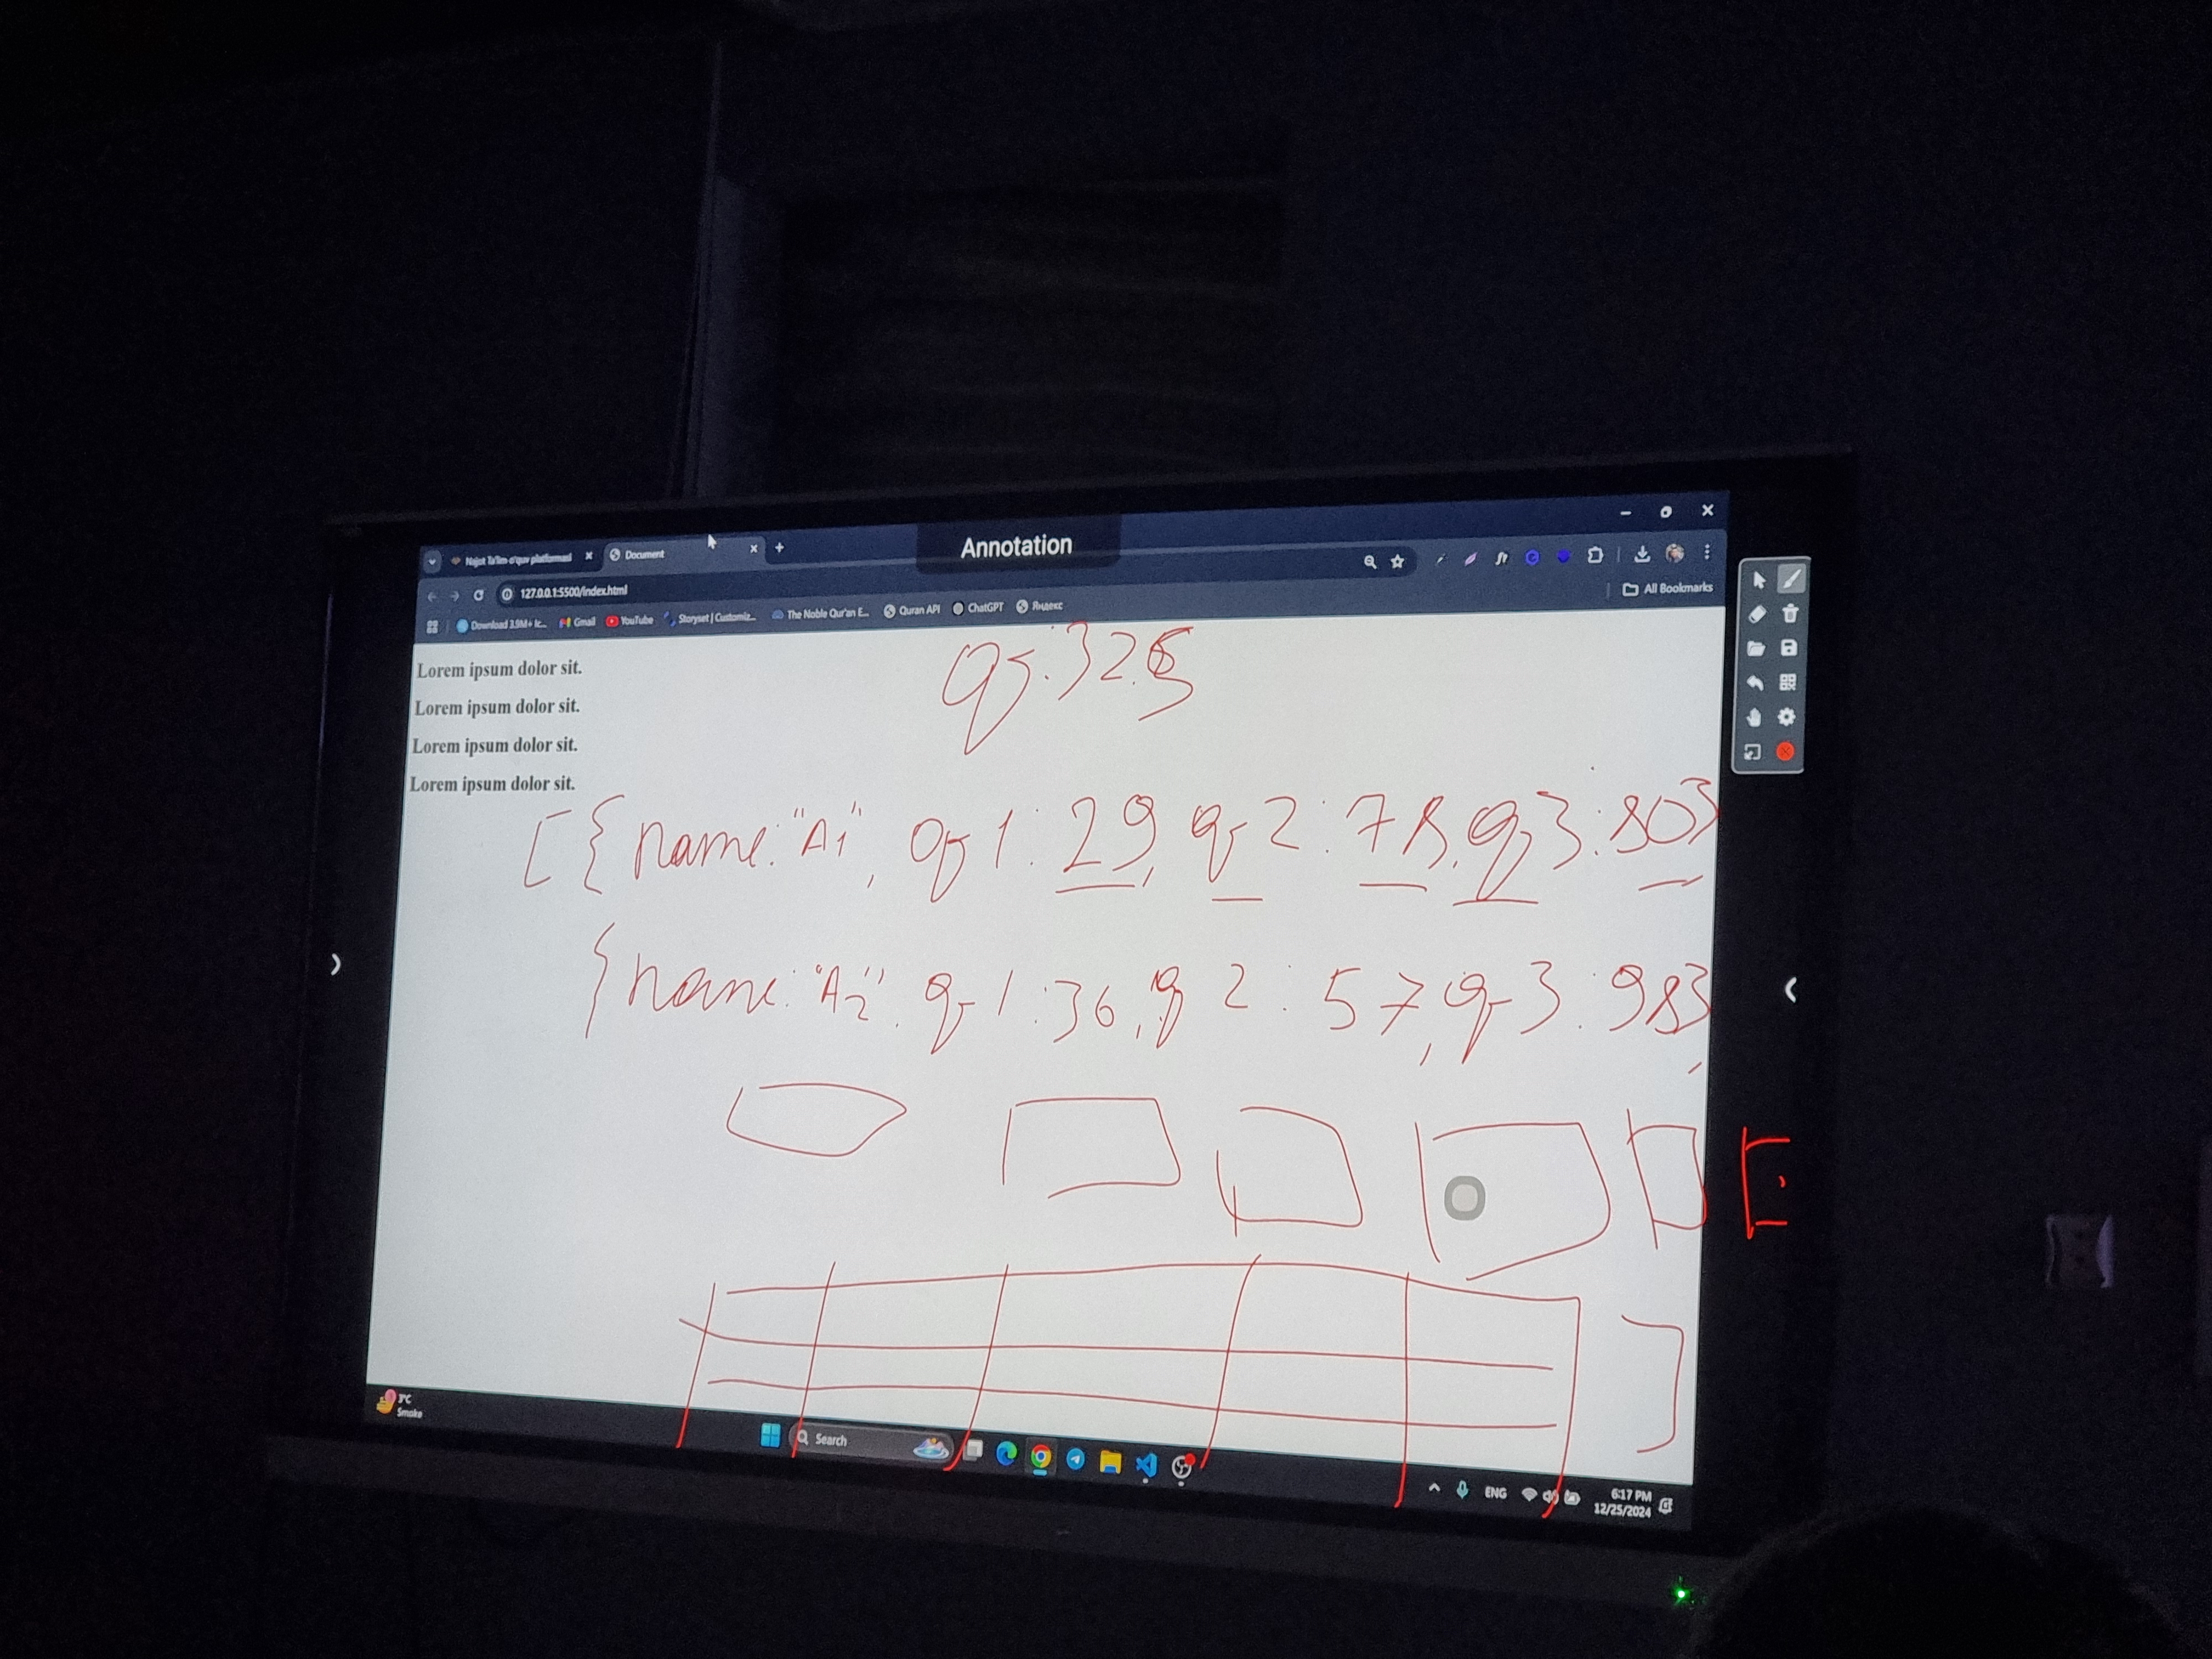 Annotation
Najot Ta'lim o'quv platformasi
Document
127.0.0.1:5500/index.html
Download 3.9M+ Ic...
Gmail
YouTube
Storyset | Customiz...
The Noble Qur'an E...
Quran API
ChatGPT
Яндекс
All Bookmarks
Lorem ipsum dolor sit.
Lorem ipsum dolor sit.
Lorem ipsum dolor sit.
Lorem ipsum dolor sit.
[{name:"A1", q1:29, q2:78, q3:80}
{name:"A2", q1:36, q2:57, q3:98},
]
3°C
Smoke
Search
ENG
6:17 PM
12/25/2024